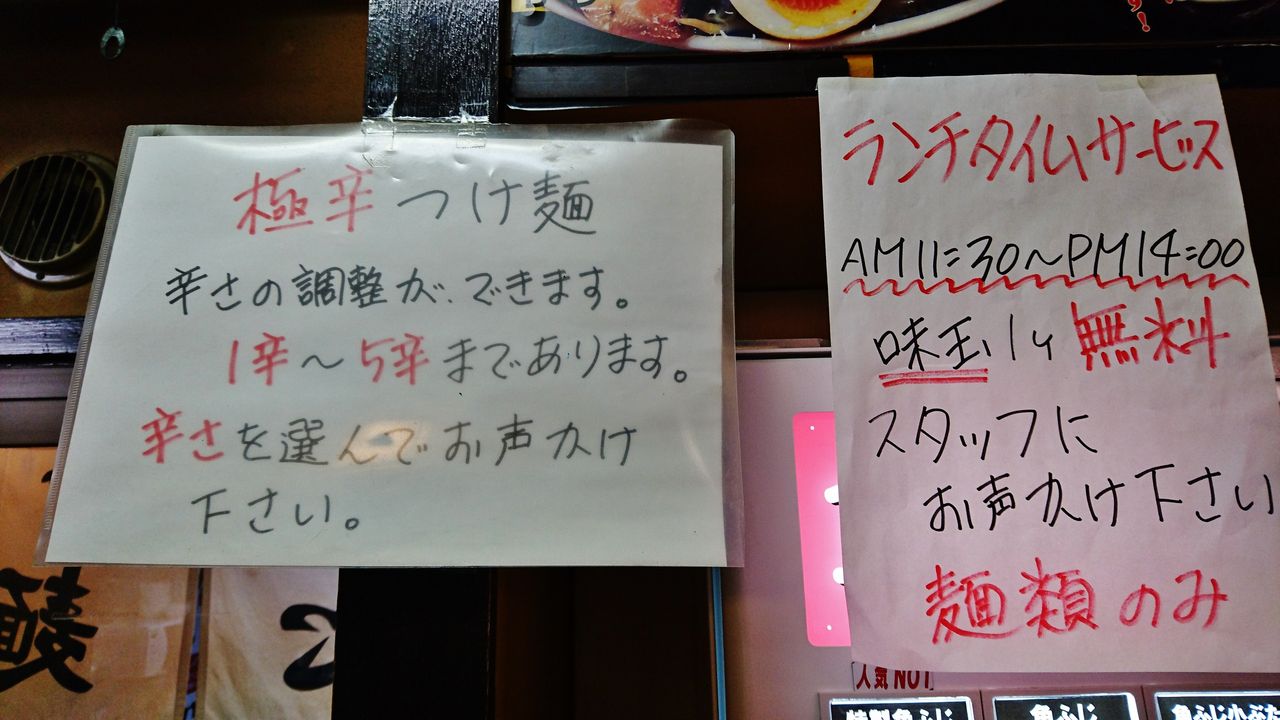 極辛つけ麺
辛さの調整ができます。
1辛〜5辛まであります。
辛さを選んでお声かけ
下さい。
ランチタイムサービス
AM11:30〜PM14:00
味玉1ヶ無料
スタッフに
お声かけ下さい
麺類のみ
人気NO1
魚ふじ